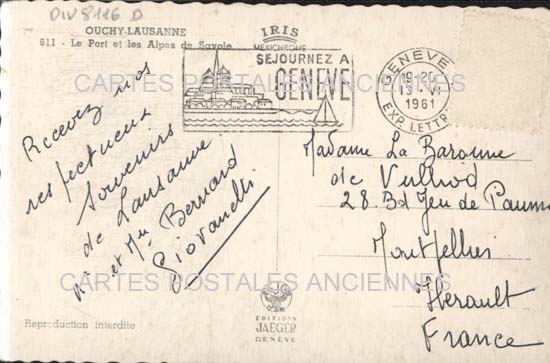 DIV 8116 D
OUCHY-LAUSANNE
611 - Le Port et les Alpes de Savoie
IRIS
MEXICHROME
SEJOURNEZ A
GENÈVE
GENÈVE
19-20
1961
EXP. LETTR
CARTES POSTALES ANCIENNES
Recevez nos
respectueux
Souvenirs
de Lausanne
et Mme Bernard
Giovanelli
Madame La Baronne
de
28. Bd Jeu de Paume
Montpellier
Hérault
France
CARTES POSTALES ANCIENNES
EDITIONS
JAEGER
GENÈVE
Reproduction interdite